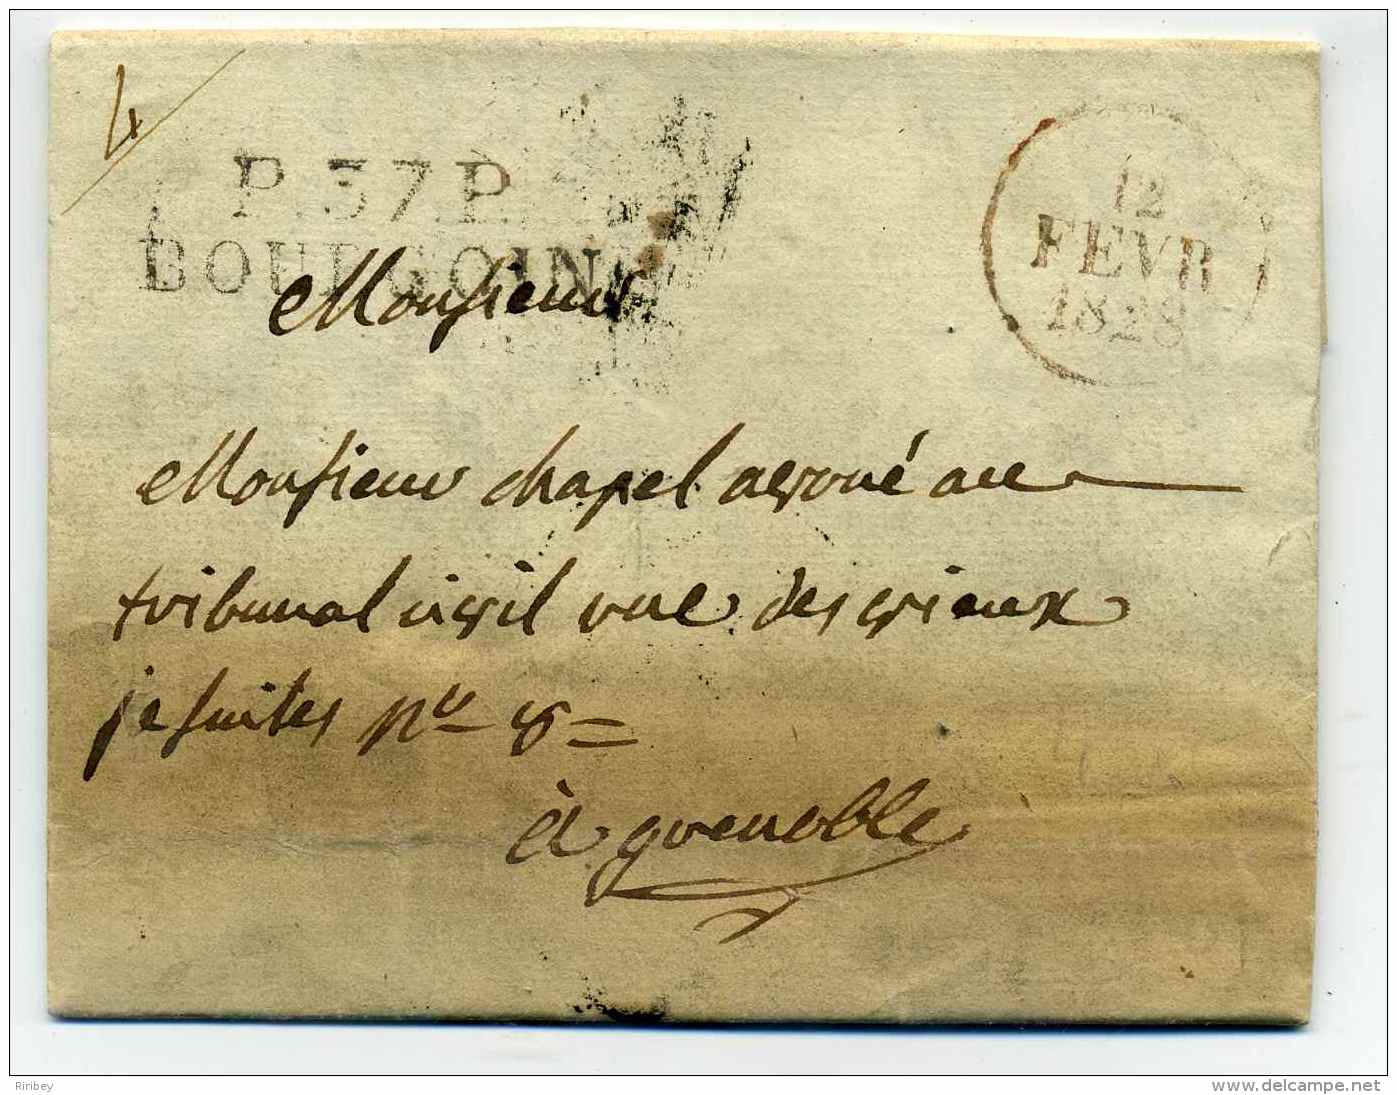 4
P.37.P.
BOURGOIN
12
FEVR
1828
Monsieur
Monsieur chapel avoué au
tribunal civil rue des vieux
jesuites n°
à grenoble
Riribey
www.delcampe.net